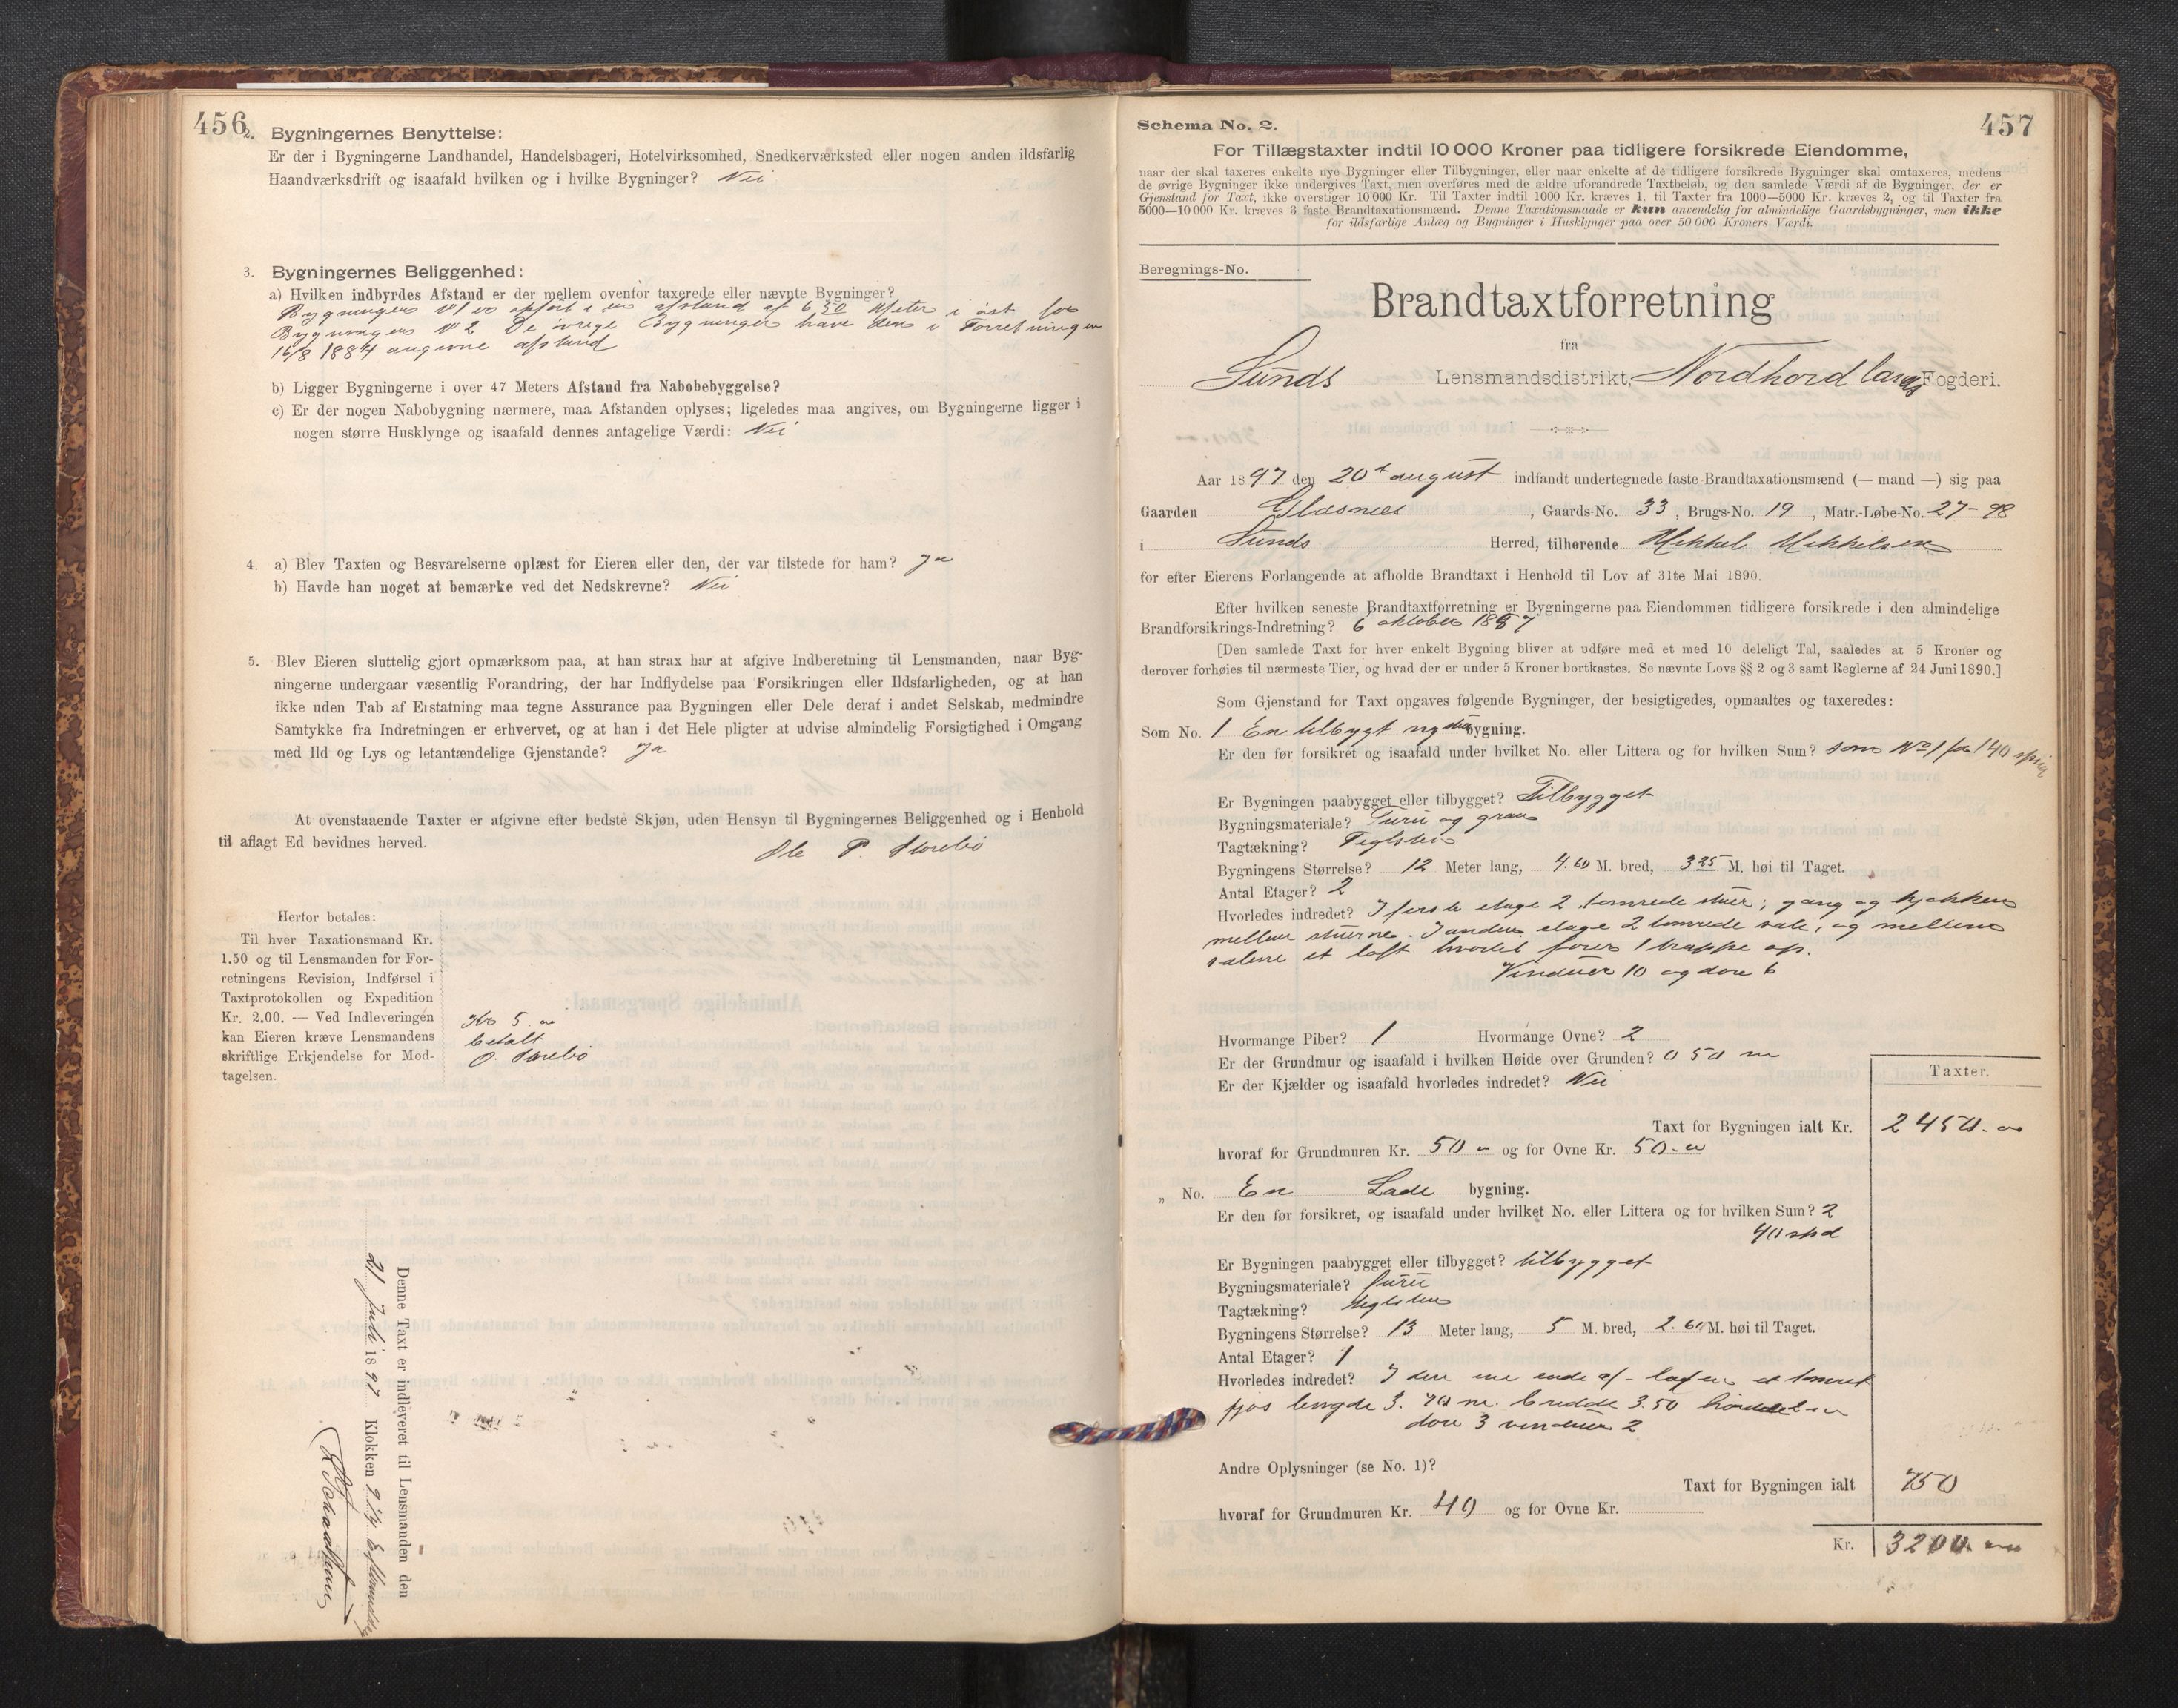 456
2. Bygningernes Benyttelse:
Er der i Bygningerne Landhandel, Handelsbageri, Hotelvirksomhed, Snedkerværksted eller nogen anden ildsfarlig
Haandværksdrift og isaafald hvilken og i hvilke Bygninger? Nei
3. Bygningernes Beliggenhed:
a) Hvilken indbyrdes Afstand er der mellem ovenfor taxerede eller nævnte Bygninger?
Bygningen No 1 er opført i en afstand af 6 50 Meter i øst for
Bygningen No 2 De øvrige Bygninger have den i Forretningen
16/8 1884 angivne afstand
b) Ligger Bygningerne i over 47 Meters Afstand fra Nabobebyggelse?
c) Er der nogen Nabobygning nærmere, maa Afstanden oplyses; ligeledes maa angives, om Bygningerne ligger i
nogen større Husklynge og isaafald dennes antagelige Værdi: Nei
4. a) Blev Taxten og Besvarelserne oplæst for Eieren eller den, der var tilstede for ham? Ja
b) Havde han noget at bemærke ved det Nedskrevne? Nei
5. Blev Eieren sluttelig gjort opmærksom paa, at han strax har at afgive Indberetning til Lensmanden, naar Byg-
ningerne undergaar væsentlig Forandring, der har Indflydelse paa Forsikringen eller Ildsfarligheden, og at han
ikke uden Tab af Erstatning maa tegne Assurance paa Bygningen eller Dele deraf i andet Selskab, medmindre
Samtykke fra Indretningen er erhvervet, og at han i det Hele pligter at udvise almindelig Forsigtighed i Omgang
med Ild og Lys og letantændelige Gjenstande? Ja
At ovenstaaende Taxter er afgivne efter bedste Skjøn, uden Hensyn til Bygningernes Beliggenhed og i Henhold
til aflagt Ed bevidnes herved.
Ole P. Storebø
Herfor betales:
Til hver Taxationsmand Kr.
1.50 og til Lensmanden for For-
retningens Revision, Indførsel i
Taxtprotokollen og Expedition
Kr. 2.00. — Ved Indleveringen
kan Eieren kræve Lensmandens
skriftlige Erkjendelse for Mod-
tagelsen.
Kr 5
betalt
O. Storebø
Denne Taxt er indleveret til Lensmanden den
21 Juli 1897 Klokken 9 1/4
457
Schema No. 2.
For Tillægstaxter indtil 10 000 Kroner paa tidligere forsikrede Eiendomme,
naar der skal taxeres enkelte nye Bygninger eller Tilbygninger, eller naar enkelte af de tidligere forsikrede Bygninger skal omtaxeres, medens
de øvrige Bygninger ikke undergives Taxt, men overføres med de ældre uforandrede Taxtbeløb, og den samlede Værdi af de Bygninger, der er
Gjenstand for Taxt, ikke overstiger 10 000 Kr. Til Taxter indtil 1000 Kr. kræves 1, til Taxter fra 1000—5000 Kr. kræves 2, og til Taxter fra
5000—10 000 Kr. kræves 3 faste Brandtaxationsmænd. Denne Taxationsmaade er kun anvendelig for almindelige Gaardsbygninger, men ikke
for ildsfarlige Anlæg og Bygninger i Husklynger paa over 50 000 Kroners Værdi.
Beregnings-No.
Brandtaxtforretning
fra
Sunds Lensmandsdistrikt, Nordhordlands Fogderi.
Aar 1897 den 20 august indfandt undertegnede faste Brandtaxationsmænd (— mand —) sig paa
Gaarden Glæsnes, Gaards-No. 33, Brugs-No. 19, Matr.-Løbe-No. 27-98
i Sunds Herred, tilhørende Mikkel Mikkelsen
for efter Eierens Forlangende at afholde Brandtaxt i Henhold til Lov af 31te Mai 1890.
Efter hvilken seneste Brandtaxtforretning er Bygningerne paa Eiendommen tidligere forsikrede i den almindelige
Brandforsikrings-Indretning? 6 oktober 1887
[Den samlede Taxt for hver enkelt Bygning bliver at udføre med et med 10 deleligt Tal, saaledes at 5 Kroner og
derover forhøies til nærmeste Tier, og hvad der er under 5 Kroner bortkastes. Se nævnte Lovs §§ 2 og 3 samt Reglerne af 24 Juni 1890.]
Som Gjenstand for Taxt opgaves følgende Bygninger, der besigtigedes, opmaaltes og taxeredes:
Som No. 1 En tilbygt ny stuebygning.
Er den før forsikret og isaafald under hvilket No. eller Littera og for hvilken Sum? som No 1 for 140
Er Bygningen paabygget eller tilbygget? Tilbygget
Bygningsmateriale? Furu og gran
Tagtækning? Teglsten
Bygningens Størrelse? 12 Meter lang, 4.60 M. bred, 3 25 M. høi til Taget.
Antal Etager? 2
Hvorledes indredet? I første etage 2 tømrede stuer; gang og kjøkken
mellem stuerne. I anden etage 2 tømrede sale, og mellem
salene et loft hvortil fører 1 trappe op.
Vinduer 10 og døre 6
Hvormange Piber? 1 Hvormange Ovne? 2
Er der Grundmur og isaafald i hvilken Høide over Grunden? 0 50 m
Er der Kjælder og isaafald hvorledes indredet? Nei
Taxter.
Taxt for Bygningen ialt Kr. 2450
hvoraf for Grundmuren Kr. 50 og for Ovne Kr. 50
„ No. En Lade bygning.
Er den før forsikret, og isaafald under hvilket No. eller Littera og for hvilken Sum? 2
40 spd
Er Bygningen paabygget eller tilbygget? tilbygget
Bygningsmateriale? furu
Tagtækning? teglsten
Bygningens Størrelse? 13 Meter lang, 5 M. bred, 2.60 M. høi til Taget.
Antal Etager? 1
Hvorledes indredet? I den ene ende af laden et tømret
fjøs længde 3.70 m. bredde 3.50
døre 3 vinduer 2
Andre Oplysninger (se No. 1)?
Taxt for Bygningen ialt 750
hvoraf for Grundmuren Kr. 40 og for Ovne Kr.
Kr. 3200